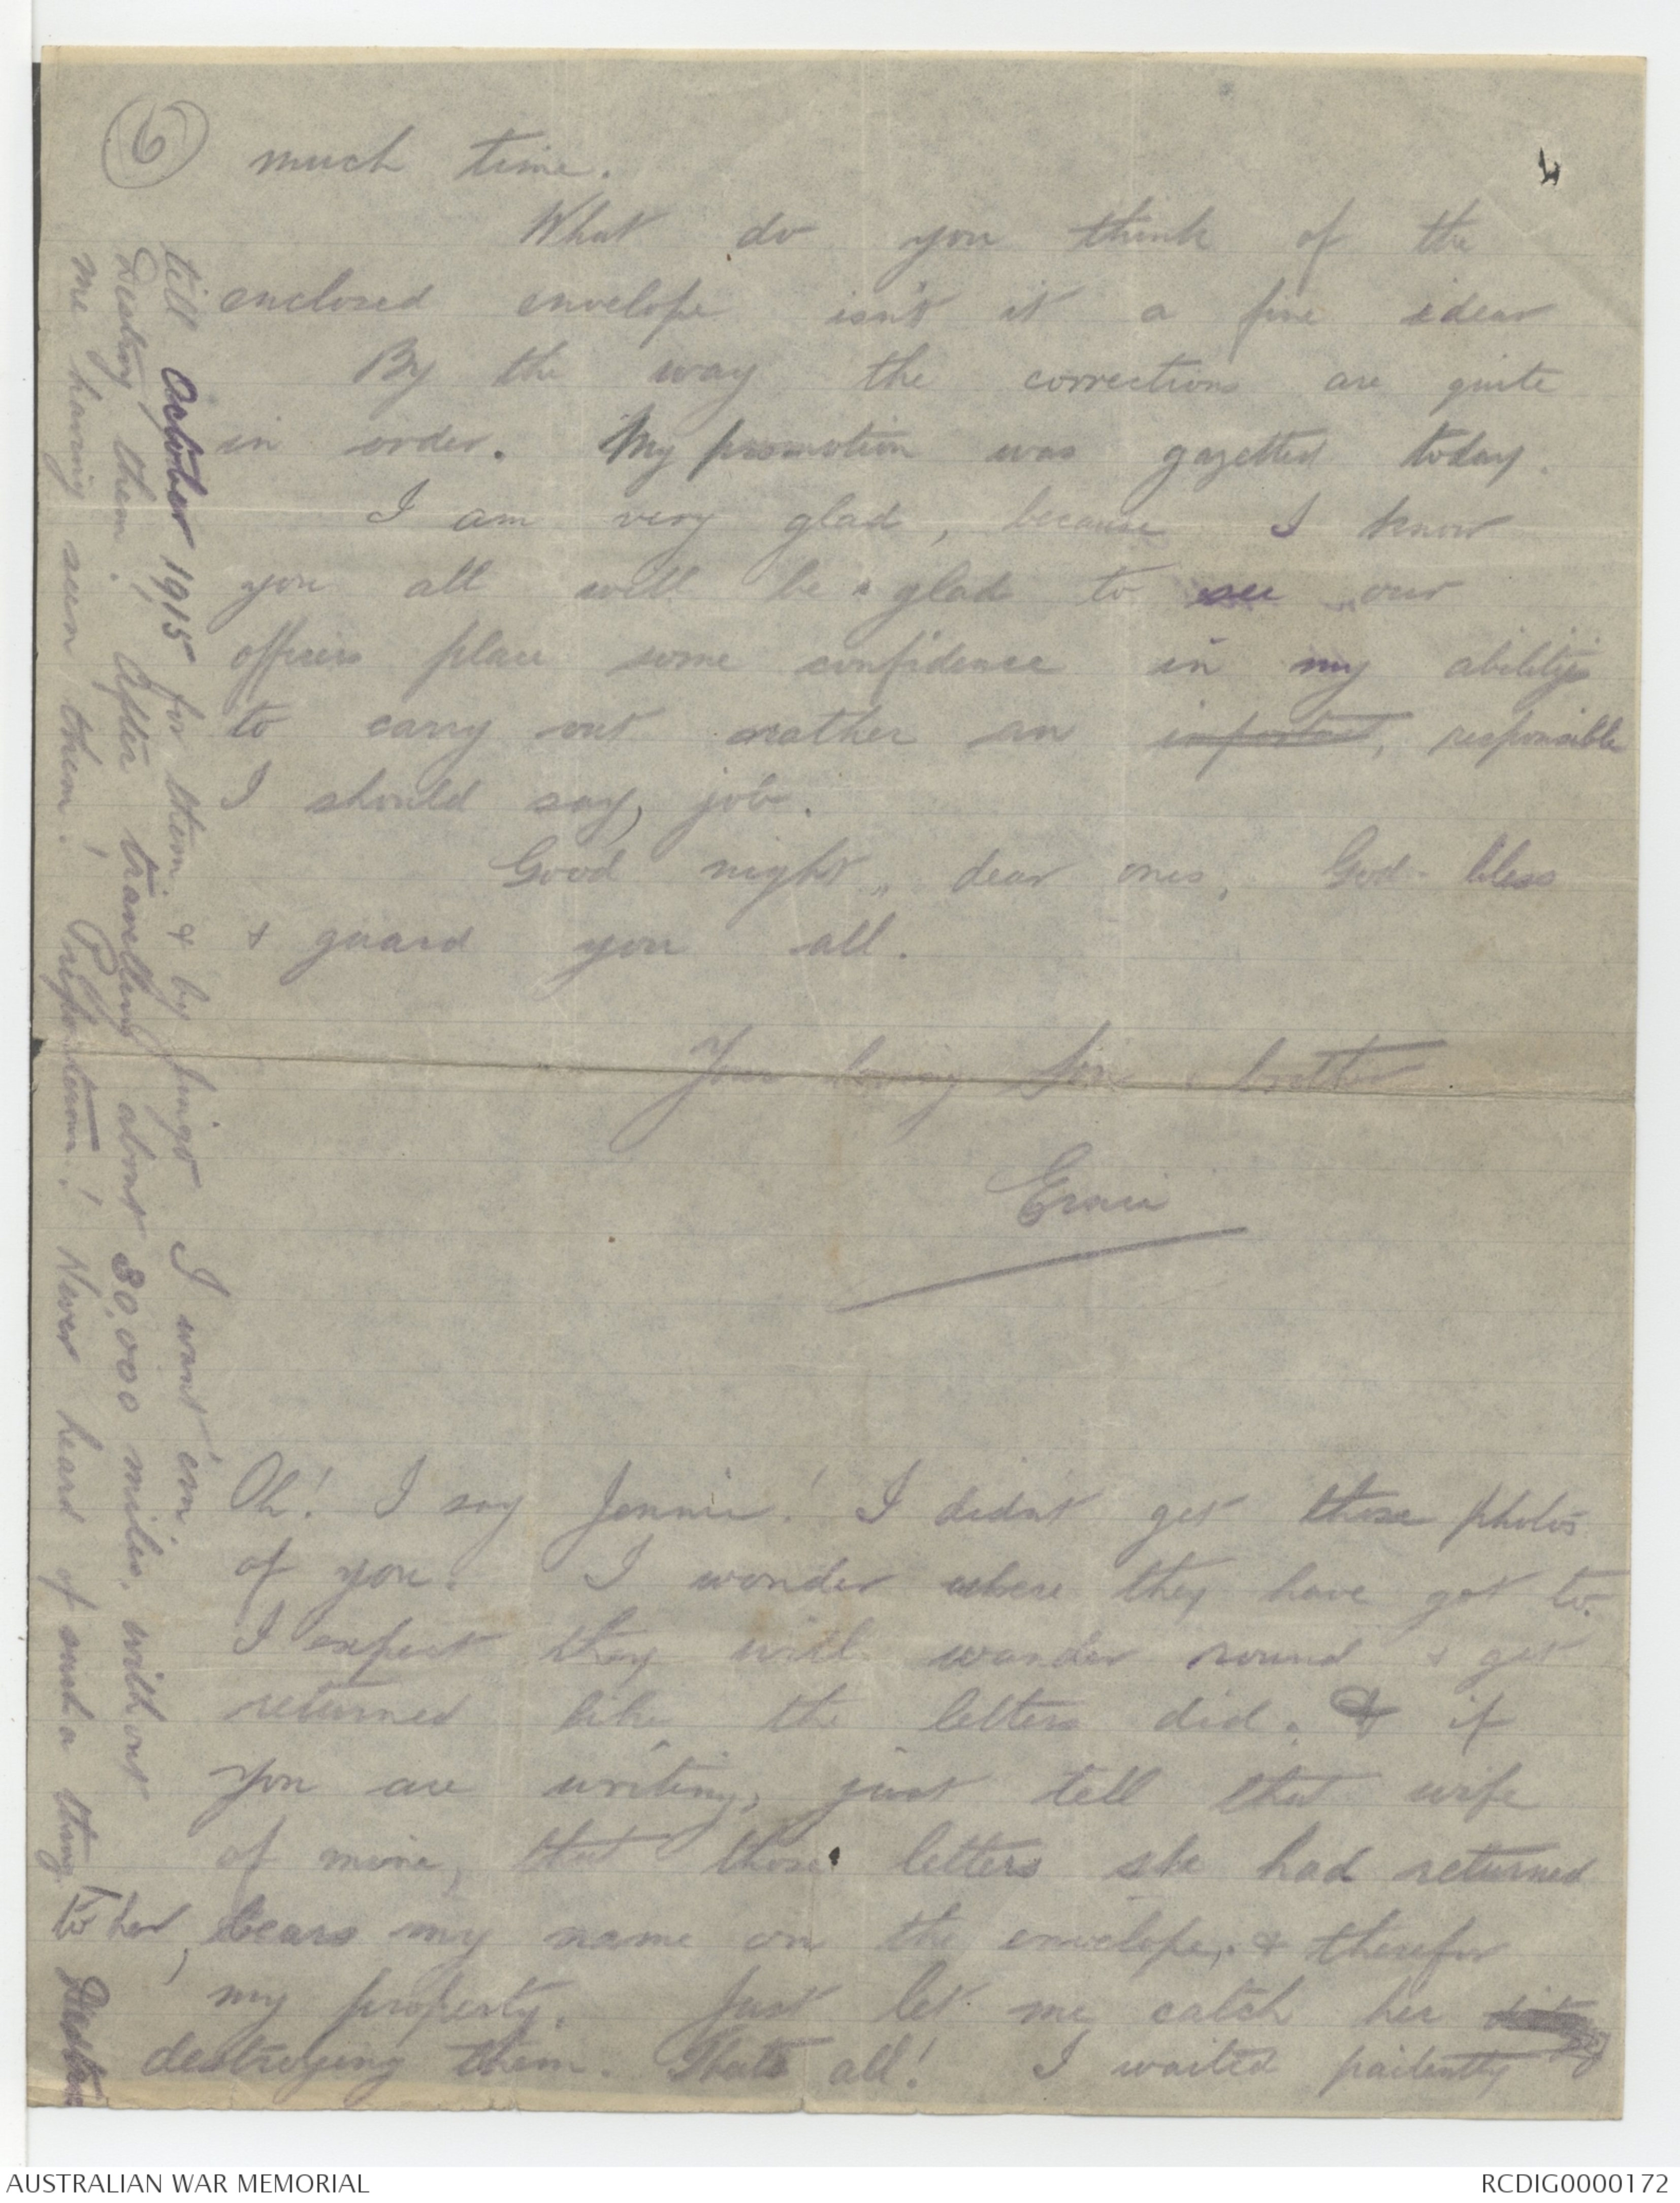 6
much time.
What do you think of the
enclosed envelope isn't it a fine idear
By the way the corrections are quite
in order. My promotion was gazetted today.
I am very glad, because I know
you all will be glad to see our
officers place some confidence in my ability
to carry out rather an important, responsible
I should say, job.
Good night, dear ones, God bless
& guard you all.
Your loving Son & brother
Ernie
Oh! I say Jennie! I didn't get those photos
of you. I wonder where they have got to.
I expect they will wander round & get
returned like the letters did. & if
you are writing, just tell that wife
of mine, that those letters she had returned
to her, bears my name on the envelope, & therefor
my property. Just let me catch her
destroying them. Thats all! I waited paitently
till October 1915 for them & by jingo I want 'em
Destroy them! After travelling about 30,000 miles, without
me having seen them! Preposterous! Never heard of such a thing
AUSTRALIAN WAR MEMORIAL
RCDIG0000172